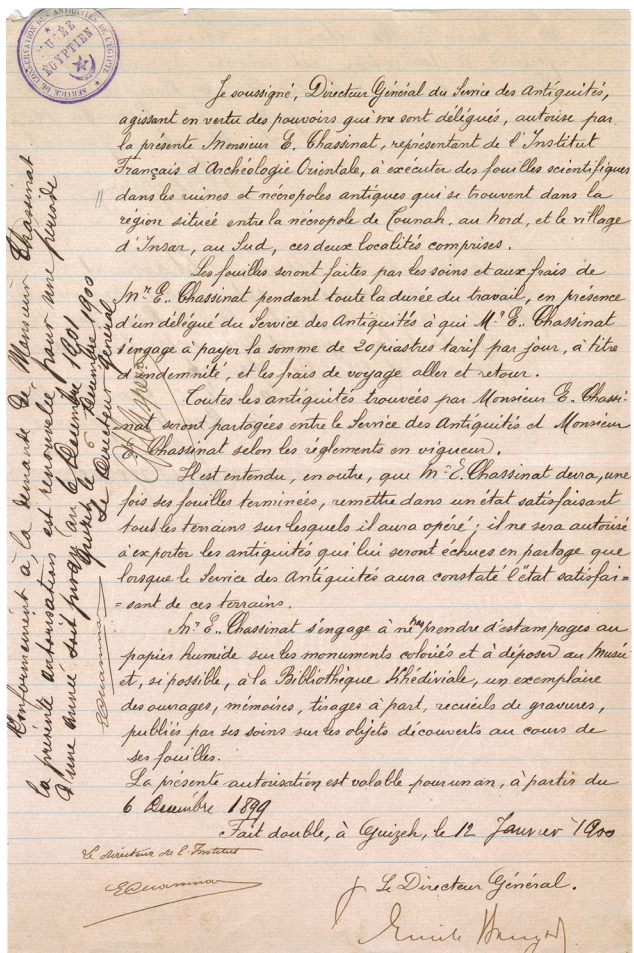 SERVICE DE CONSERVATION DES ANTIQUITÉS DE L'EGYPTE
MUSÉE
ÉGYPTIEN
Je soussigné, Directeur Général du Service des Antiquités,
agissant en vertu des pouvoirs qui me sont délégués, autorise par
la présente Monsieur E. Chassinat, représentant de l'Institut
Français d'Archéologie Orientale, à exécuter des fouilles scientifiques
dans les ruines et nécropoles antiques qui se trouvent dans la
région située entre la nécropole de Counah, au Nord, et le village
d'Insar, au Sud, ces deux localités comprises.
Les fouilles seront faites par les soins et aux frais de
Mr. E. Chassinat pendant toute la durée du travail, en présence
d'un délégué du Service des Antiquités à qui Mr E. Chassinat
s'engage à payer la somme de 20 piastres tarif par jour, à titre
d'indemnité, et les frais de voyage aller et retour.
Toutes les antiquités trouvées par Monsieur E. Chassi-
nat seront partagées entre le Service des Antiquités et Monsieur
E. Chassinat selon les règlements en vigueur.
Il est entendu, en outre, que Mr E. Chassinat devra, une
fois ses fouilles terminées, remettre dans un état satisfaisant
tous les terrains sur lesquels il aura opéré ; il ne sera autorisé
à exporter les antiquités qui lui seront échues en partage que
lorsque le Service des Antiquités aura constaté l'état satisfai=
=sant de ces terrains.
Mr. E. Chassinat s'engage à ne pas prendre d'estampages au
papier humide sur les monuments coloriés et à déposer au Musée
et, si possible, à la Bibliothèque Khédiviale, un exemplaire
des ouvrages, mémoires, tirages à part, recueils de gravures,
publiés par ses soins sur les objets découverts au cours de
ses fouilles.
La présente autorisation est valable pour un an, à partir du
6 Décembre 1899
Fait double, à Guizeh, le 12 Janvier 1900
Le directeur de l'Institut
Le Directeur Général.
Conformément à la demande de Monsieur Chassinat
la présente autorisation est renouvelée pour une période
d'une année soit jusqu'au 6 Décembre 1901
Guizeh, le 6 Décembre 1900
Le Directeur Général